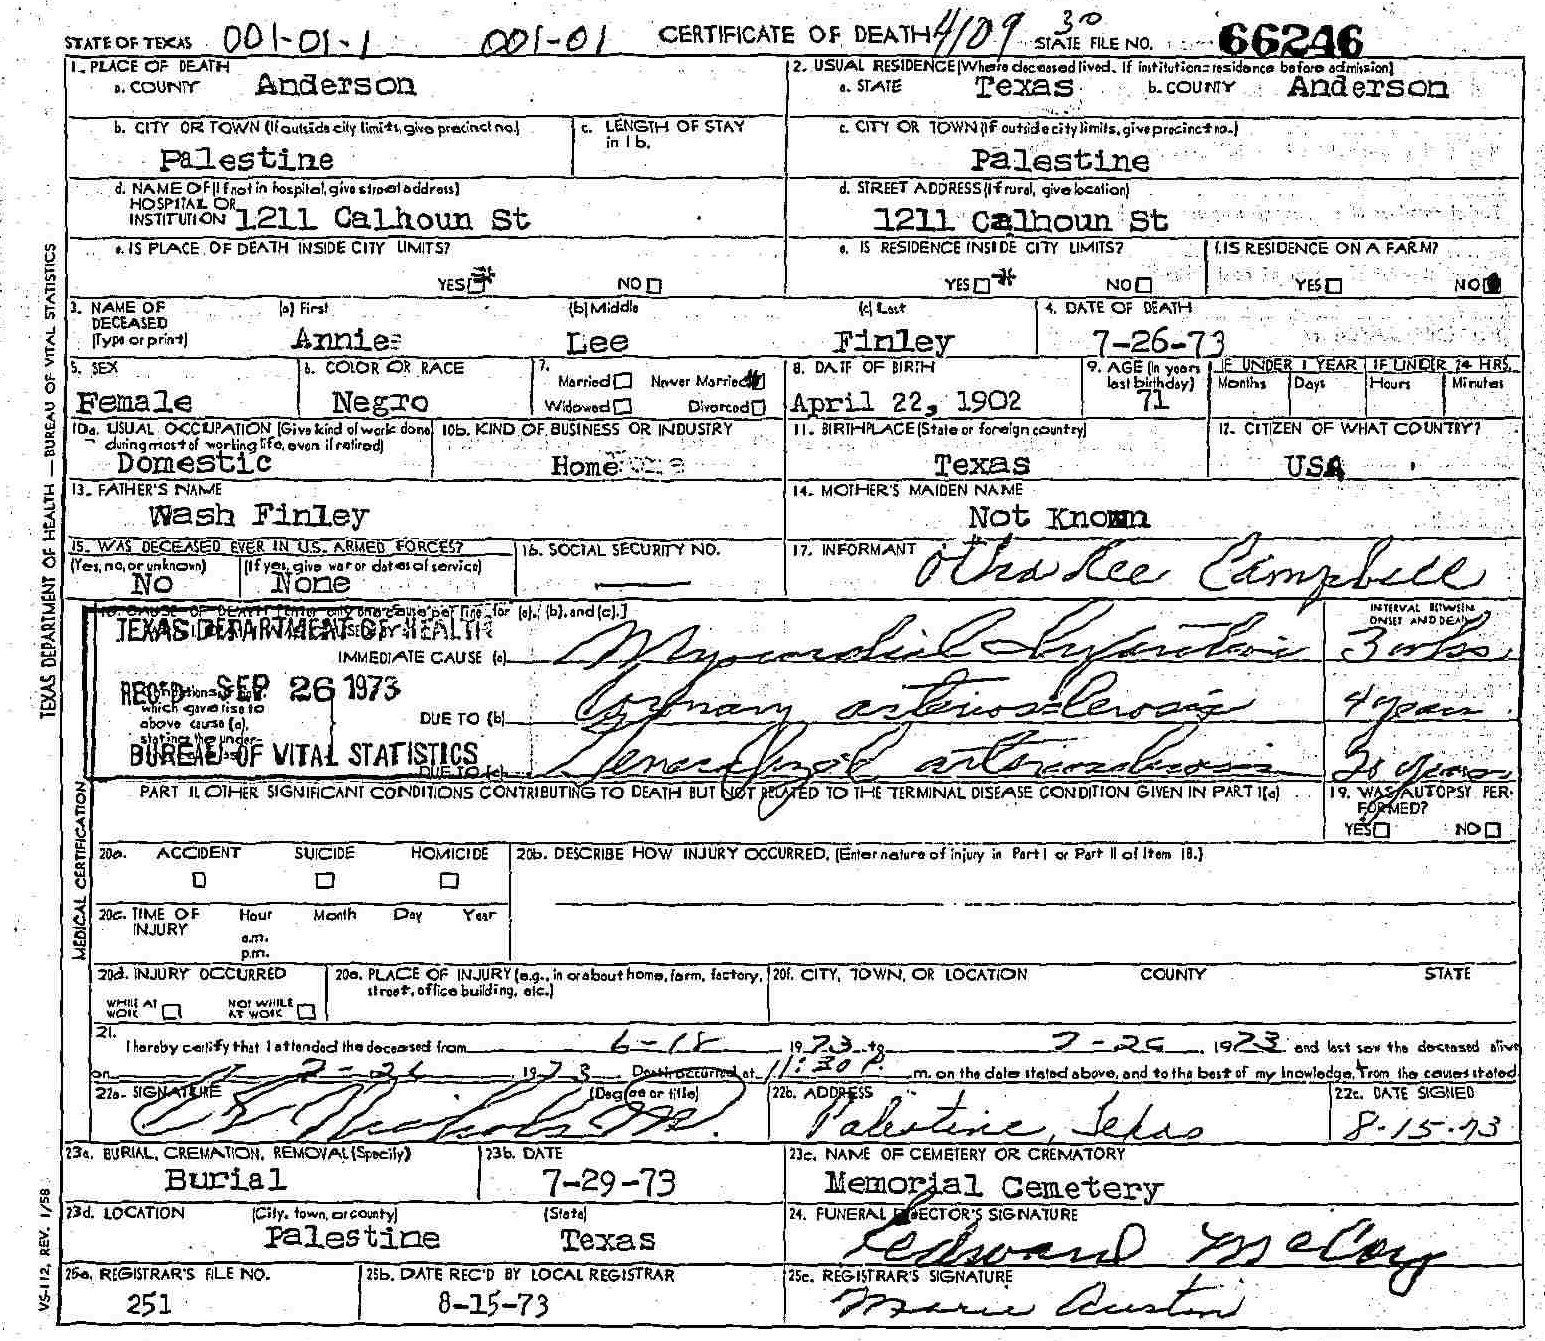 STATE OF TEXAS 001-01-1 001-01 CERTIFICATE OF DEATH 4109 30 STATE FILE NO. 66246
1. PLACE OF DEATH
a. COUNTY Anderson
2. USUAL RESIDENCE (Where deceased lived. If institution: residence before admission)
a. STATE Texas b. COUNTY Anderson
b. CITY OR TOWN (If outside city limits, give precinct no.)
Palestine
c. LENGTH OF STAY in 1b.
c. CITY OR TOWN (If outside city limits, give precinct no.)
Palestine
d. NAME OF (If not in hospital, give street address)
HOSPITAL OR
INSTITUTION 1211 Calhoun St
d. STREET ADDRESS (If rural, give location)
1211 Calhoun St
e. IS PLACE OF DEATH INSIDE CITY LIMITS?
YES NO
e. IS RESIDENCE INSIDE CITY LIMITS?
YES NO
f. IS RESIDENCE ON A FARM?
YES NO
3. NAME OF DECEASED (Type or print)
(a) First Annie
(b) Middle Lee
(c) Last Finley
4. DATE OF DEATH
7-26-73
5. SEX
Female
6. COLOR OR RACE
Negro
7. Married Never Married
Widowed Divorced
8. DATE OF BIRTH
April 22, 1902
9. AGE (In years last birthday)
71
IF UNDER 1 YEAR IF UNDER 24 HRS.
Months Days Hours Minutes
10a. USUAL OCCUPATION (Give kind of work done during most of working life, even if retired)
Domestic
10b. KIND OF BUSINESS OR INDUSTRY
Home
11. BIRTHPLACE (State or foreign country)
Texas
12. CITIZEN OF WHAT COUNTRY?
USA
13. FATHER'S NAME
Wash Finley
14. MOTHER'S MAIDEN NAME
Not Known
15. WAS DECEASED EVER IN U.S. ARMED FORCES?
(Yes, no, or unknown) No
(If yes, give war or dates of service) None
16. SOCIAL SECURITY NO.
17. INFORMANT Otha Lee Campbell
18. CAUSE OF DEATH [Enter only one cause per line for (a), (b), and (c).]
INTERVAL BETWEEN ONSET AND DEATH
TEXAS DEPARTMENT OF HEALTH
REC'D SEP 26 1973
BUREAU OF VITAL STATISTICS
IMMEDIATE CAUSE (a) Myocardial Infarction 3 wks
which gave rise to
above cause (a),
stating the under-
DUE TO (b) Coronary arteriosclerosis 4 years
DUE TO (c) Generalized arteriosclerosis 20 years
PART II. OTHER SIGNIFICANT CONDITIONS CONTRIBUTING TO DEATH BUT NOT RELATED TO THE TERMINAL DISEASE CONDITION GIVEN IN PART I(a)
19. WAS AUTOPSY PERFORMED?
YES NO
20a. ACCIDENT SUICIDE HOMICIDE
20b. DESCRIBE HOW INJURY OCCURRED. (Enter nature of injury in Part I or Part II of Item 18.)
20c. TIME OF INJURY Hour Month Day Year
a.m.
p.m.
20d. INJURY OCCURRED
WHILE AT WORK NOT WHILE AT WORK
20e. PLACE OF INJURY (e.g., in or about home, farm, factory, street, office building, etc.)
20f. CITY, TOWN, OR LOCATION COUNTY STATE
21. I hereby certify that I attended the deceased from 6-18 1973 to 7-26 1973 and last saw the deceased alive
on 7-26 1973. Death occurred at 11:30 P. m. on the date stated above, and to the best of my knowledge, from the causes stated
22a. SIGNATURE (Degree or title)
Nichols MD.
22b. ADDRESS
Palestine, Texas
22c. DATE SIGNED
8-15-73
23a. BURIAL, CREMATION, REMOVAL (Specify)
Burial
23b. DATE
7-29-73
23c. NAME OF CEMETERY OR CREMATORY
Memorial Cemetery
23d. LOCATION (City, town, or county) (State)
Palestine Texas
24. FUNERAL DIRECTOR'S SIGNATURE
Edward McCoy
25a. REGISTRAR'S FILE NO.
251
25b. DATE REC'D BY LOCAL REGISTRAR
8-15-73
25c. REGISTRAR'S SIGNATURE
Marie Austin
TEXAS DEPARTMENT OF HEALTH — BUREAU OF VITAL STATISTICS
MEDICAL CERTIFICATION
VS-112, REV. 1/58